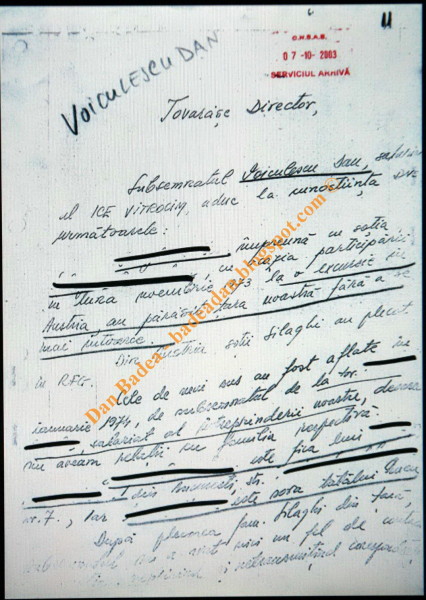 11
C.N.S.A.S.
07-10-2003
SERVICIUL ARHIVĂ
VOICULESCU DAN
Tovarășe Director,
Subsemnatul Voiculescu Dan, salariat
al ICE VITROCIM, aduc la cunoștința
următoarele:
împreună cu soția
, cu ocazia participării
în luna noiembrie 1973 la o excursie în
Austria au părăsit țara noastră fără a se
mai întoarce.
Din Austria, soții Silaghi au plecat
în R.F.G.
Cele de mai sus au fost aflate în
ianuarie 1974, de subsemnatul de la tov.
, salariat al întreprinderii noastre, deoarece
nu aveam relații cu familia respectivă.
este fiica lui
din București, str.
nr. 7, iar este sora tatălui
După plecarea fam. Silaghi din țară,
subsemnatul nu a avut nici un fel de
Dan Badea - badeadan.blogspot.com ©